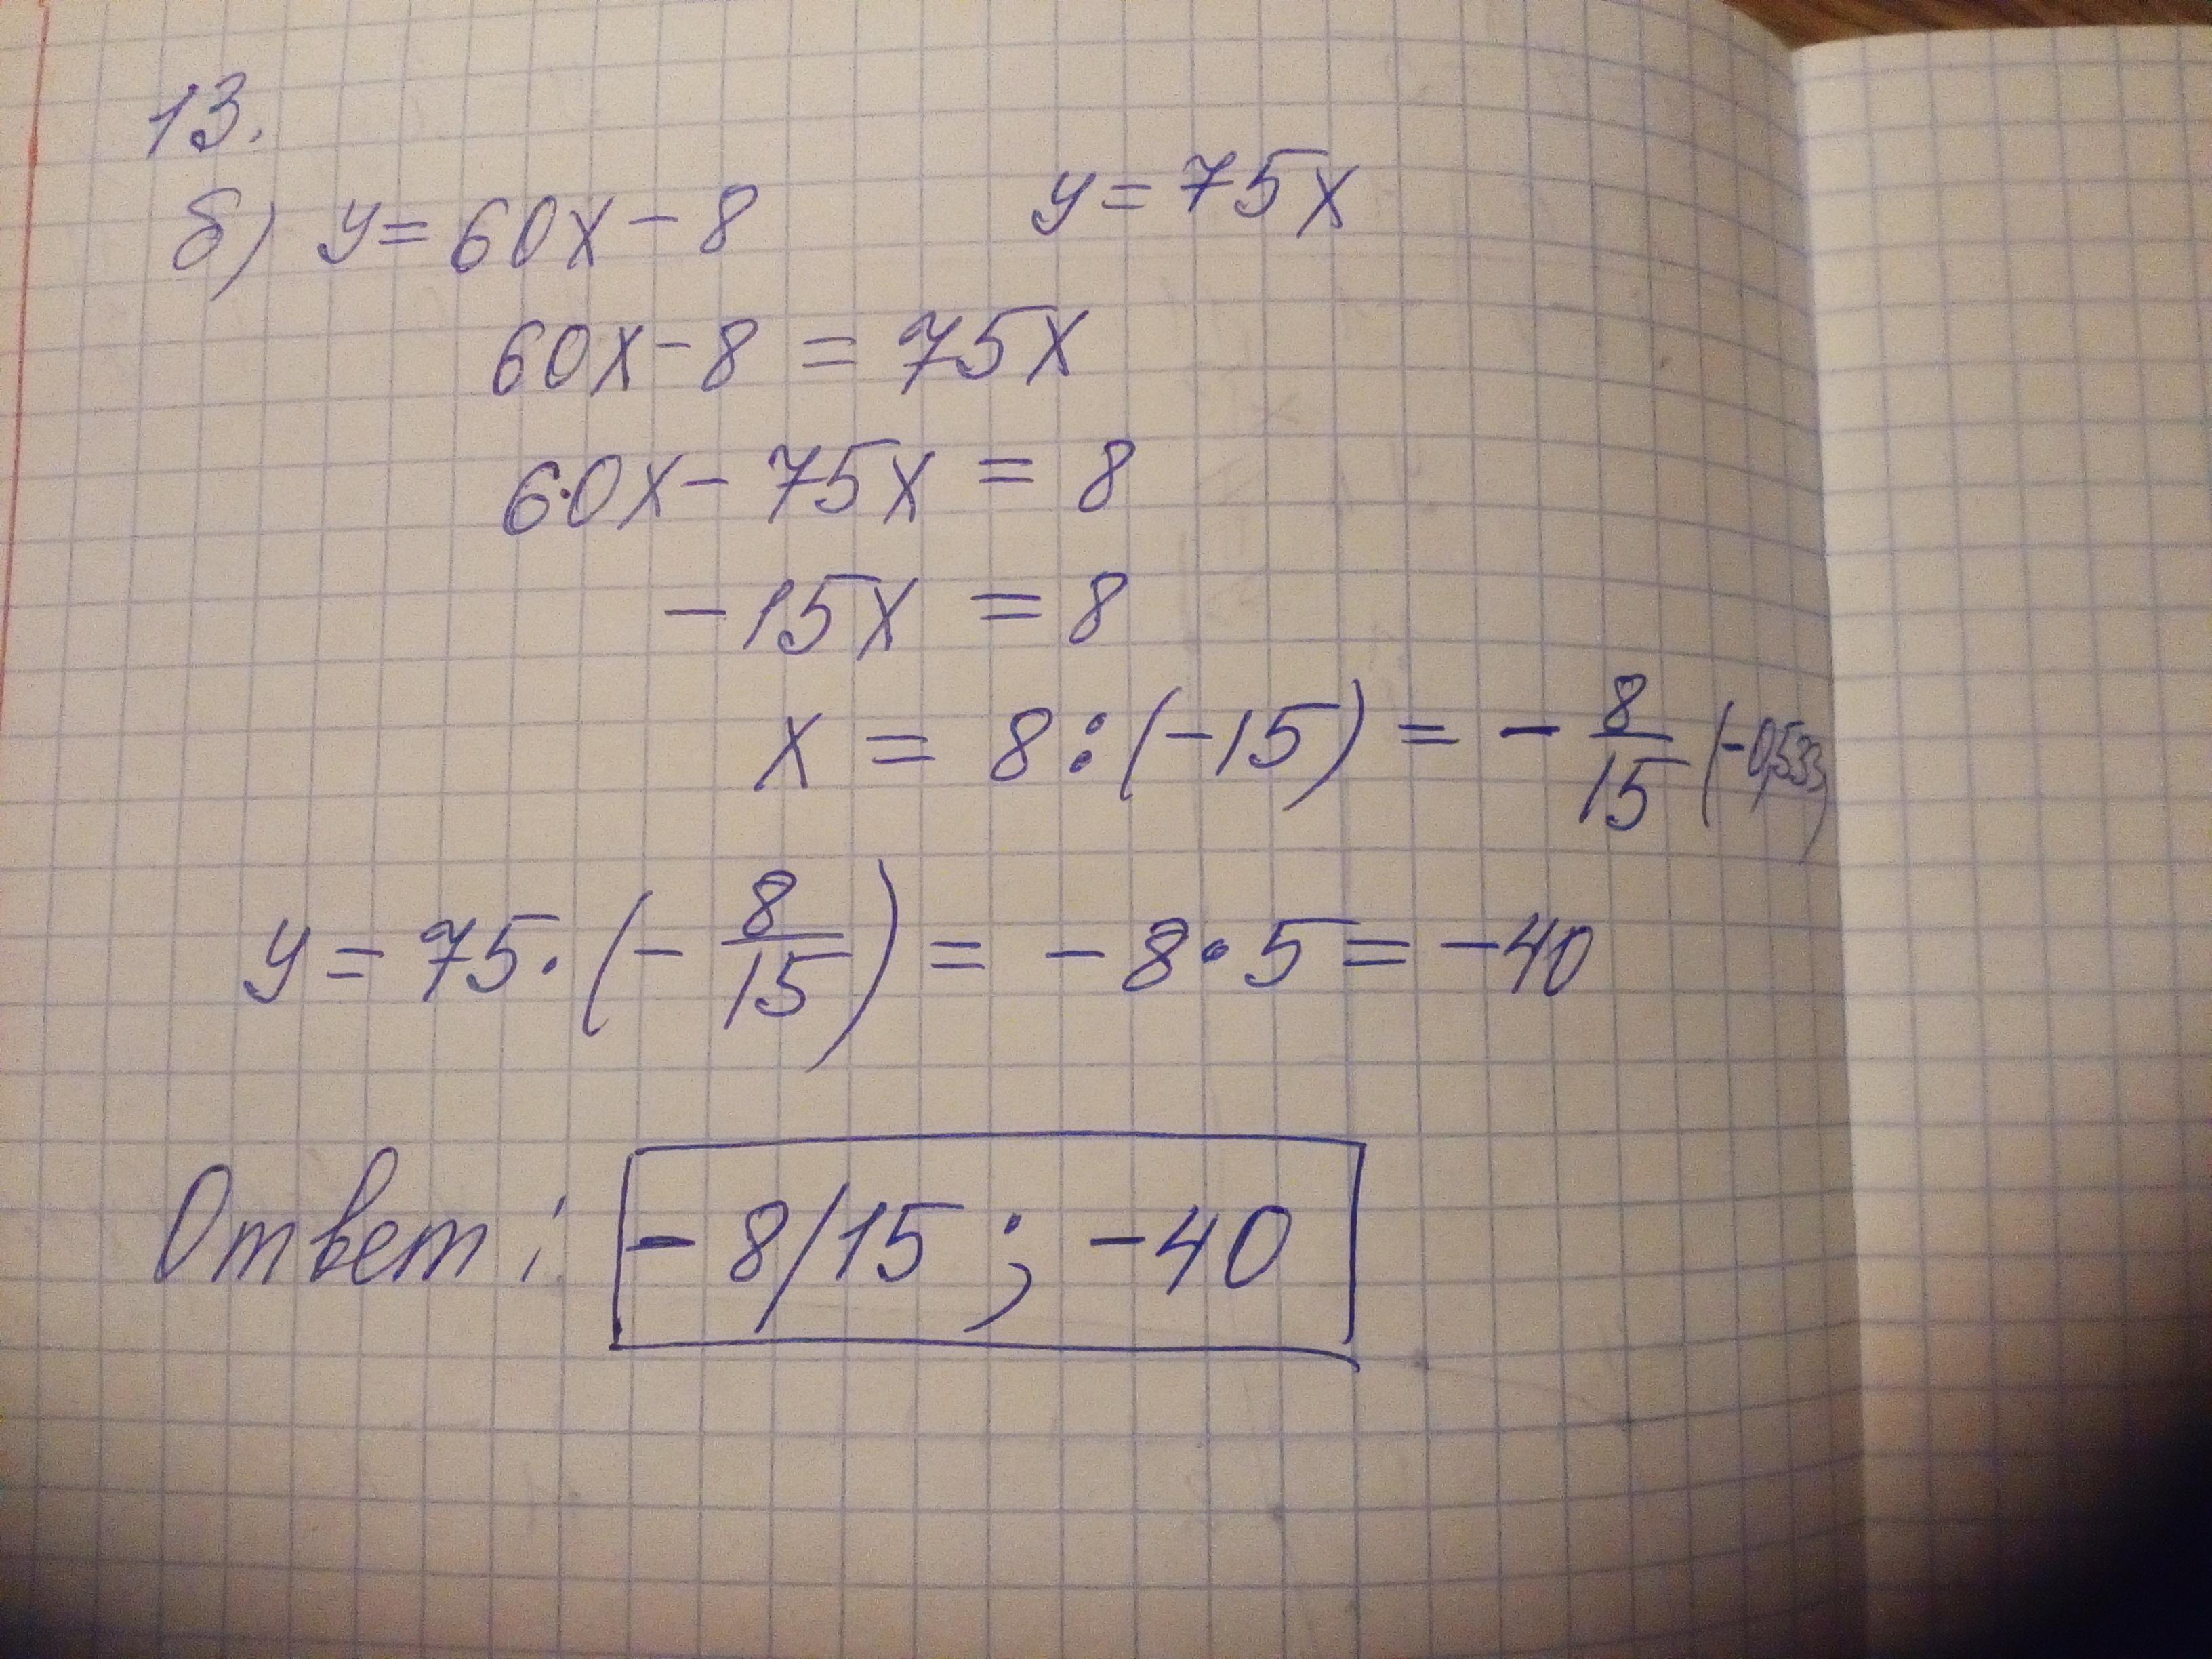 13.
б) y = 60x - 8 y = 75x
60x - 8 = 75x
60x - 75x = 8
-15x = 8
x = 8 : (-15) = - 8/15 (-0,533)
y = 75 · (- 8/15) = -8 · 5 = -40
Ответ: - 8/15 ; -40